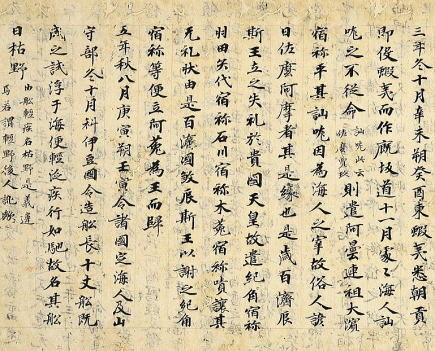 三年冬十月辛未朔癸酉東蝦夷悉朝貢
即役蝦夷而作厩坂道十一月處々海人訕
哤之不從命訕哤此云佐麼賣玖則遣阿曇連祖大濱
宿祢平其訕哤因為海人之宰故俗人諺
曰佐麼阿摩者其是縁也是歳百濟辰
斯王立之失礼於貴國天皇故遣紀角宿祢
羽田矢代宿祢石川宿祢木菟宿祢嘖讓其
无礼狀由是百濟國敛辰斯王以謝之紀角
宿祢等便立阿花為王而歸
五年秋八月庚寅朔壬寅令諸國定海人及山
守部冬十月科伊豆國令造舩長十丈舩既
成之試浮于海便輕泛疾行如馳故名其舩
曰枯野由舩輕疾名枯野是義違
焉若謂輕野後人訛歟